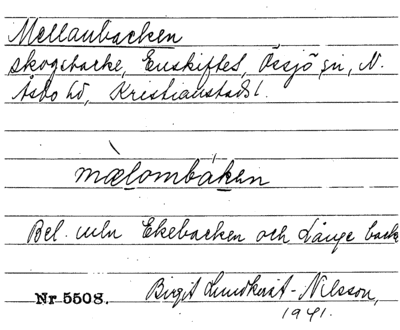 Mellanbacken
skogsbacke, Enskiftet, Össjö sn, N.
Åsbo hd, Kristianstads l.
mæ̀lombáken
Bel. mln Ekebacken och Långe back
Nr 5508. Birgit Lundkvist-Nilsson,
1941.